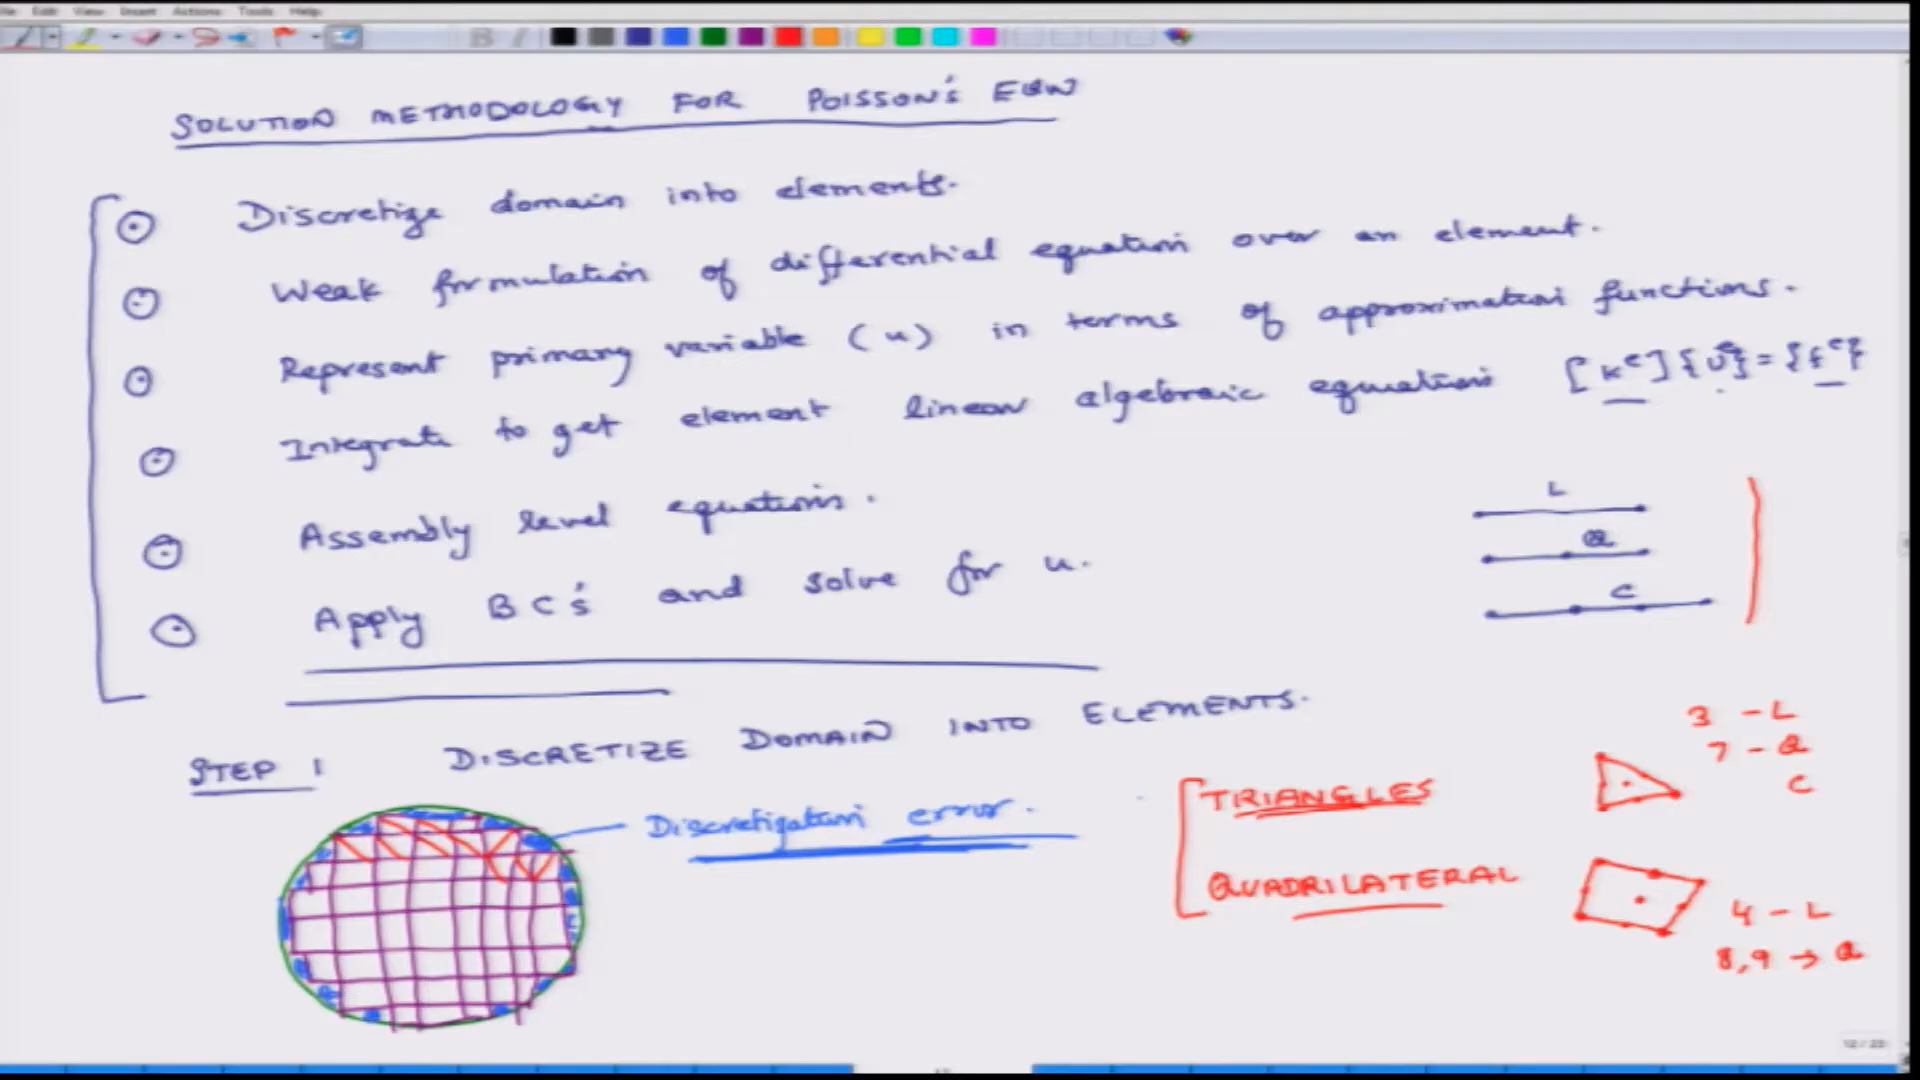 Edit View Insert Actions Tools Help
SOLUTION METHODOLOGY FOR POISSON'S EQN
Discretize domain into elements.
Weak formulation of differential equation over an element.
Represent primary variable (u) in terms of approximation functions.
Integrate to get element linear algebraic equations [K^e]{U^e}={f^e}
Assembly level equations.
Apply BC's and solve for u.
L
Q
C
STEP 1 DISCRETIZE DOMAIN INTO ELEMENTS.
Discretization error.
TRIANGLES
3 - L
7 - Q
C
QUADRILATERAL
4 - L
8,9 → Q
12 / 23